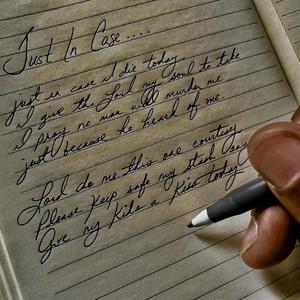 Just In Case....
just in case I die today
I give the Lord my soul to take
I pray no man will murder me
just because he heard of me.
Lord do me this one courtesy
Please keep safe my stash
Give my Kids a Kiss today